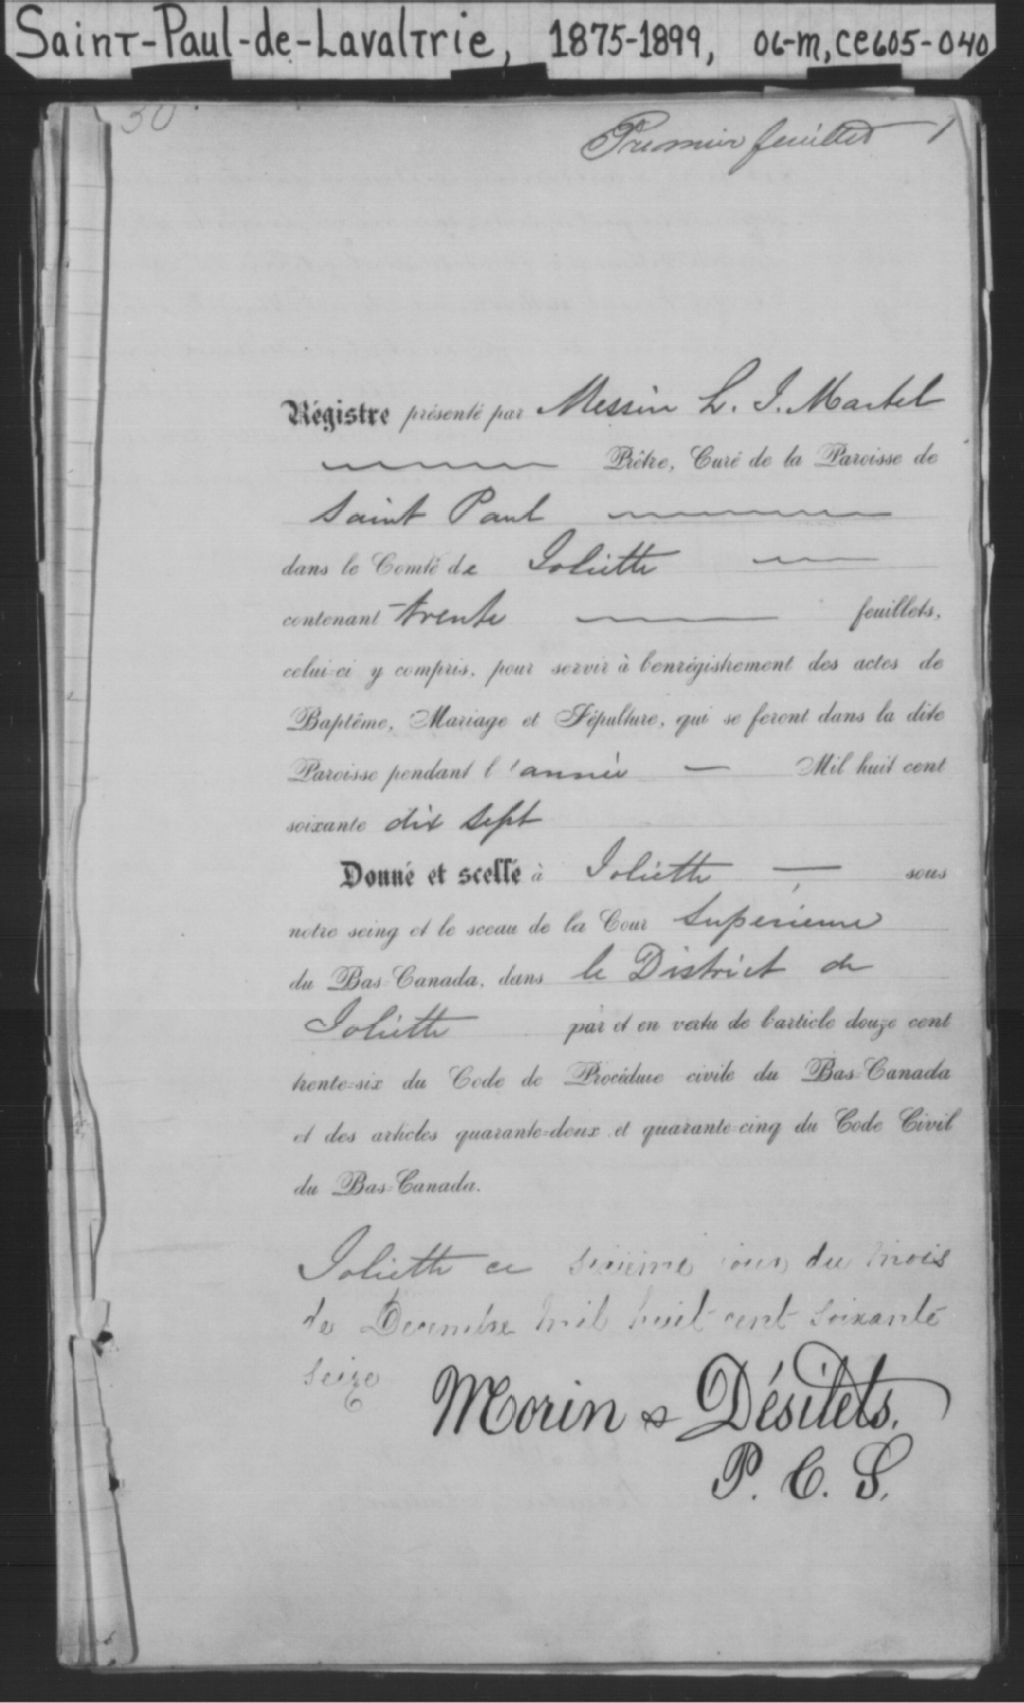 Saint-Paul-de-Lavaltrie, 1875-1899, 06-m, CE605-040
30
Premier feuillet 1
Régistre présenté par Messire L. J. Martel
Prêtre, Curé de la Paroisse de
Saint Paul
dans le Comté de Joliette
contenant trente feuillets,
celui-ci y compris, pour servir à l'enrégistrement des actes de
Baptême, Mariage et Sépulture, qui se feront dans la dite
Paroisse pendant l'année Mil huit cent
soixante dix sept
Donné et scellé à Joliette sous
notre seing et le sceau de la Cour Supérieure
du Bas-Canada, dans le District de
Joliette par et en vertu de l'article douze cent
trente-six du Code de Procédure civile du Bas-Canada
et des articles quarante-deux et quarante-cinq du Code Civil
du Bas-Canada.
Joliette ce jour du mois
de Decembre mil huit cent soixante
seize
Morin & Désilets.
P. C. S.